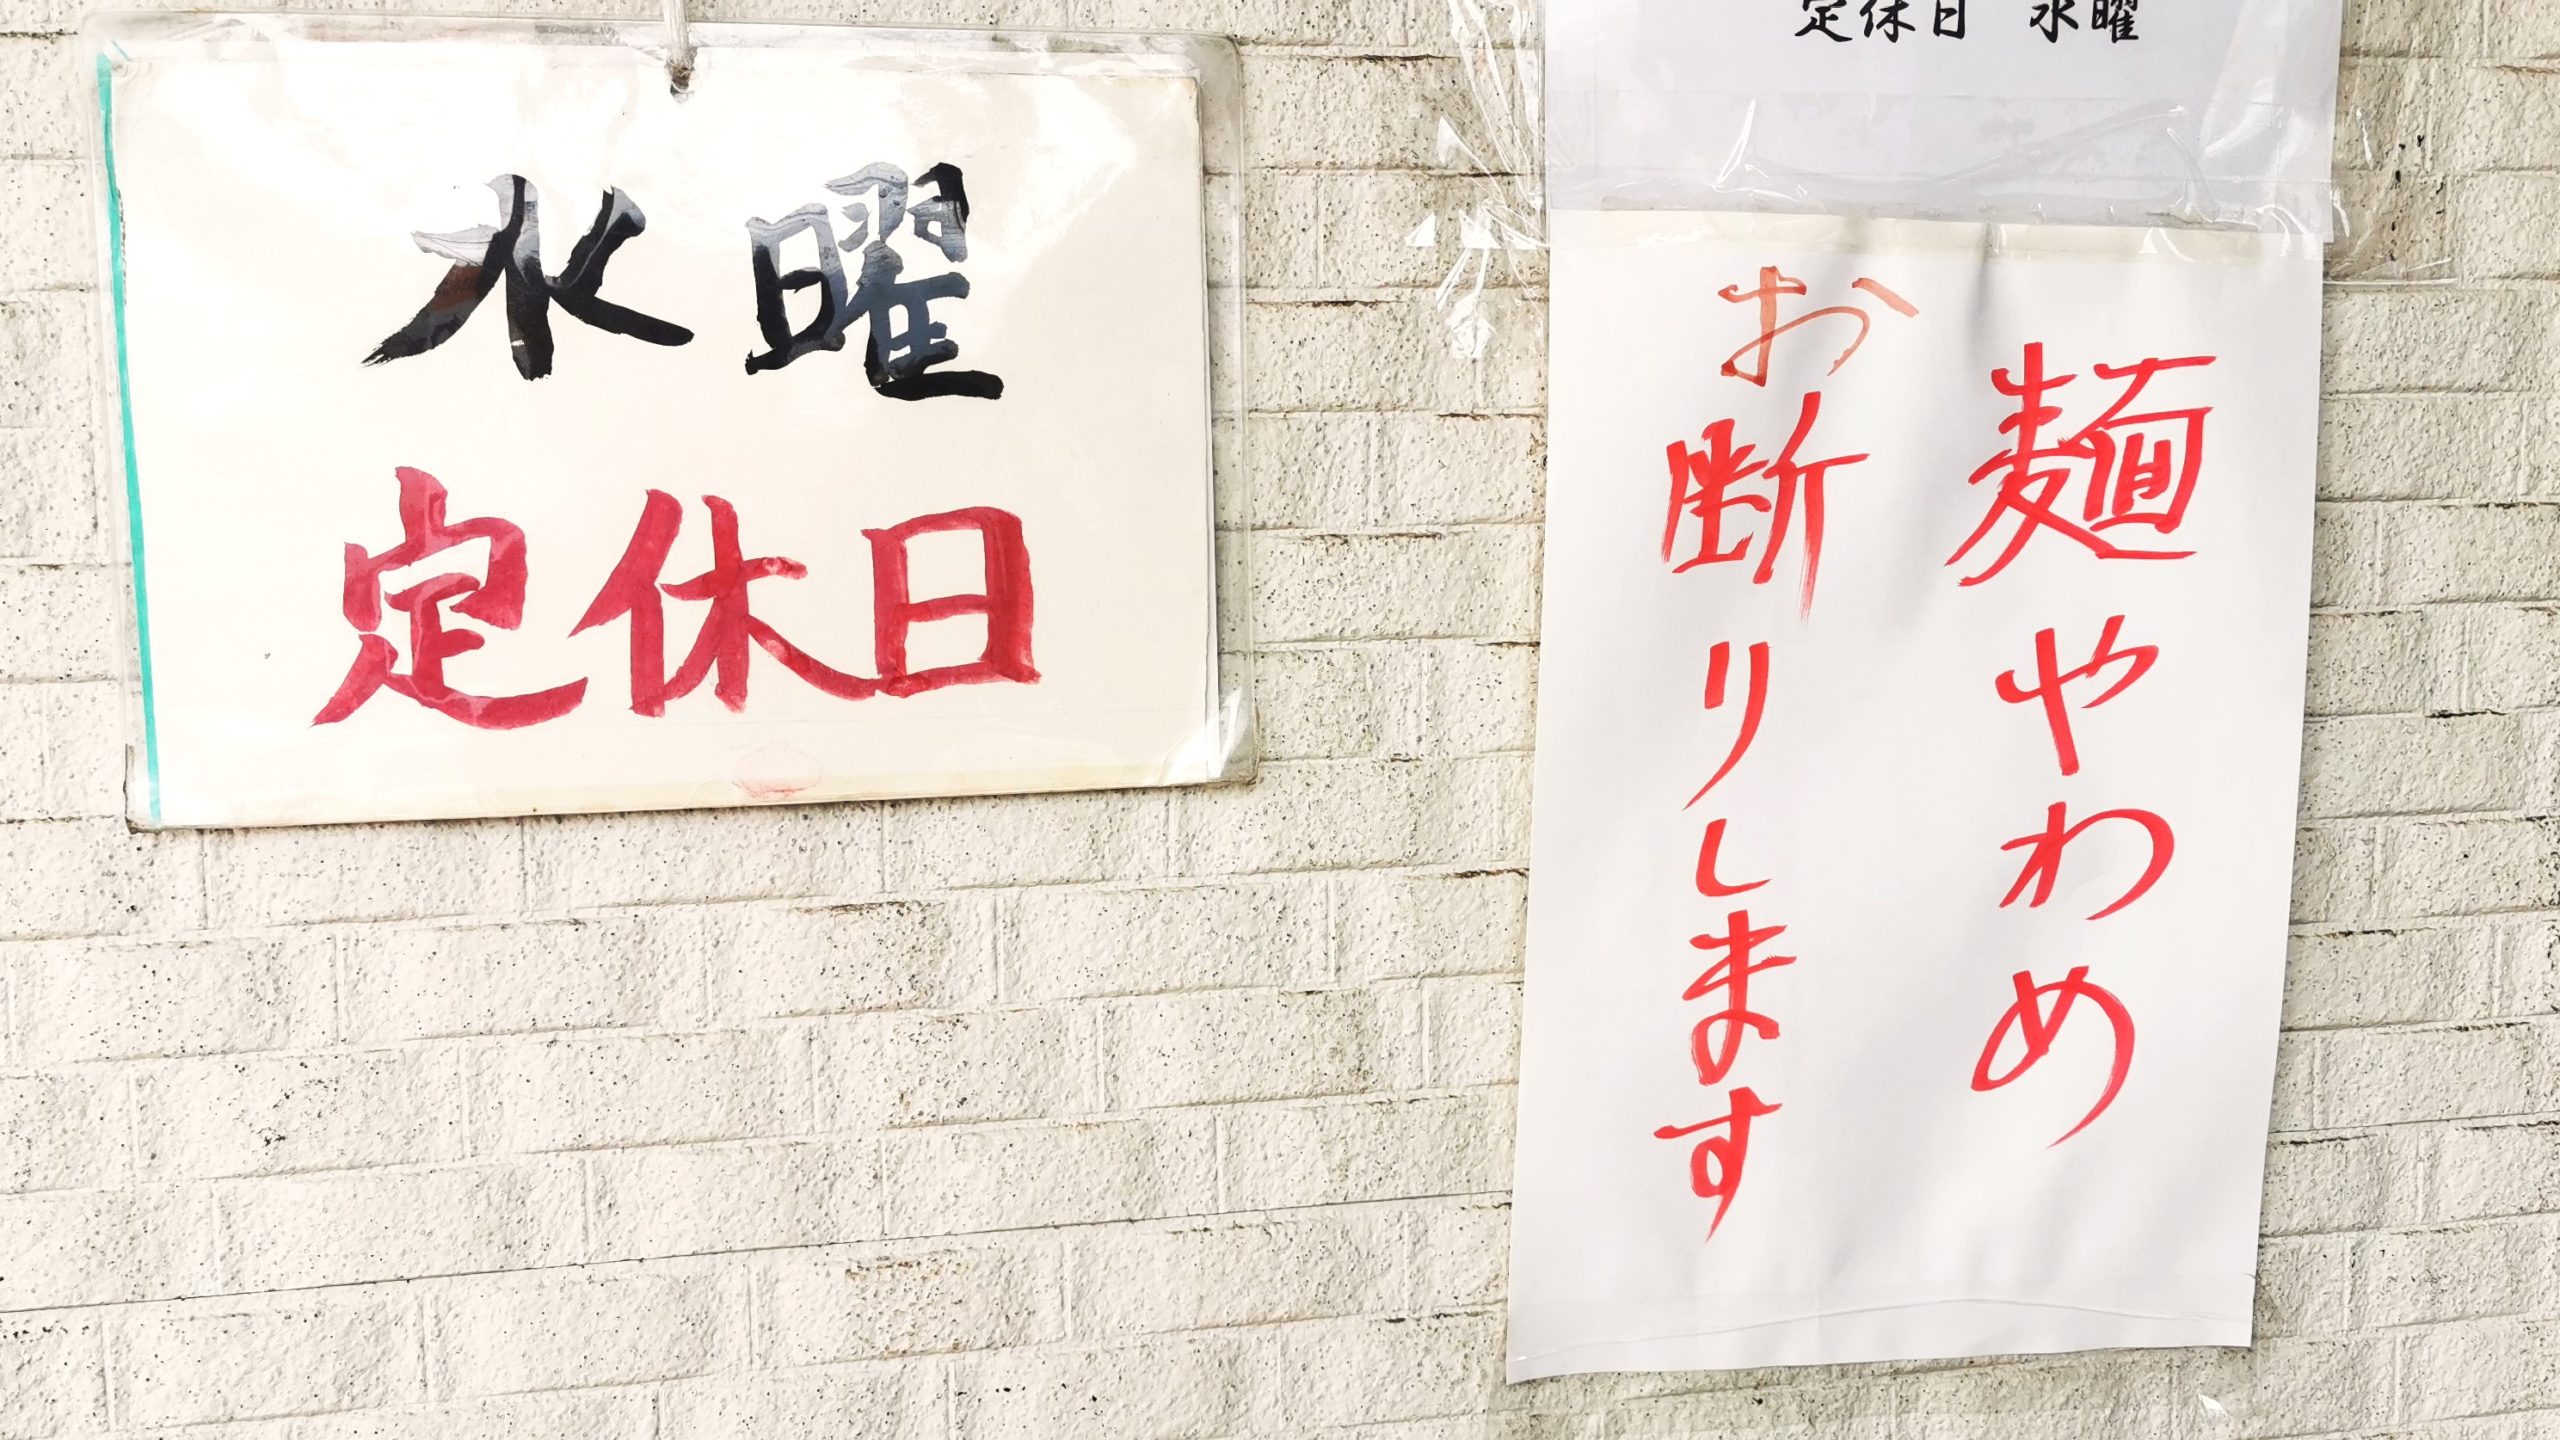 水曜
定休日
定休日 水曜
麺やわめ
お断りします